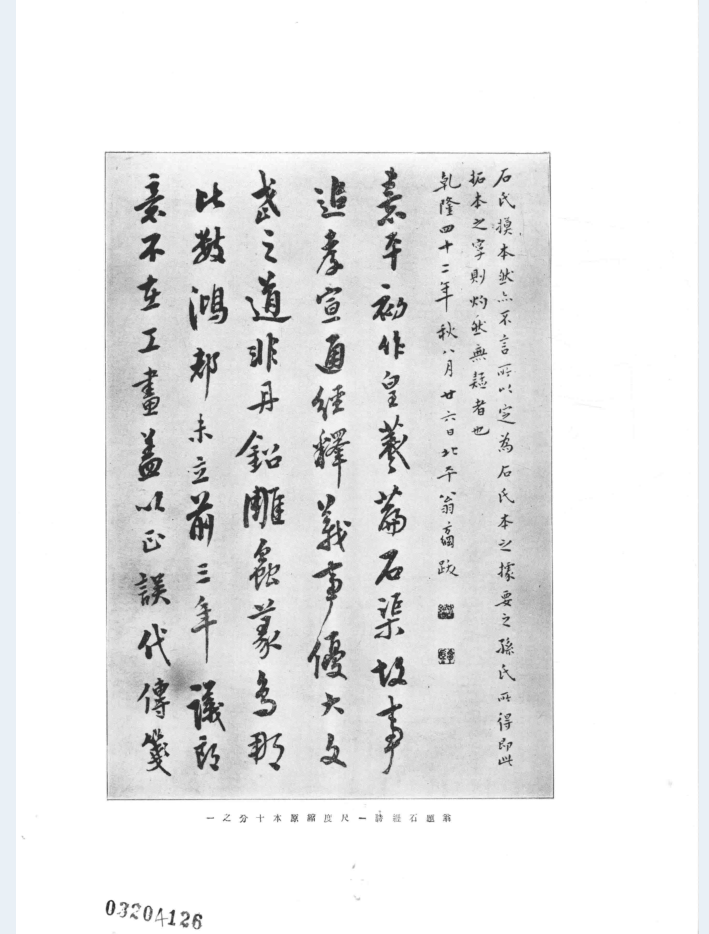 石氏摸本然亦不言所以定為石氏本之據要之孫氏所得即此
拓本之字則灼然無疑者也
乾隆四十二年秋八月廿六日北平翁方綱跋
熹平初作皇羲篇石渠故事
追孝宣通經釋義事優大文
武之道非丹鉛雕蟲篆鳥那
比數鴻都未立前三年議郎
意不在工畫蓋以正誤代傳箋
翁題石經詩一尺度縮原本十分之一
03204126